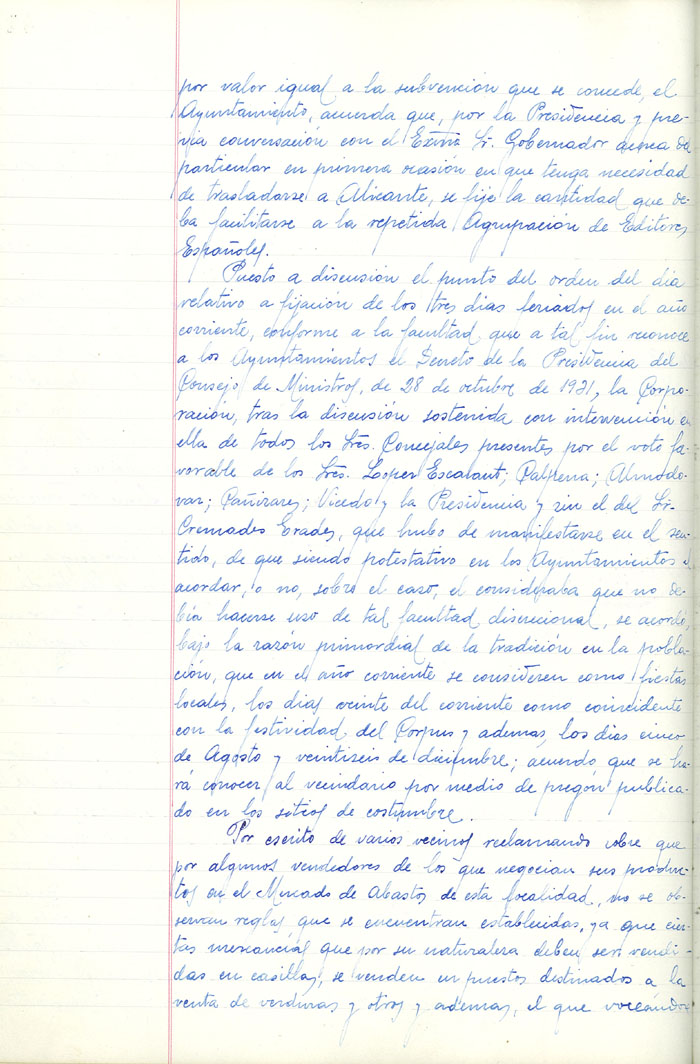 por valor igual a la subvención que se concede, el
Ayuntamiento, acuerda que, por la Presidencia y pre-
via conversación con el Exmo Sr. Gobernador acerca del
particular en primera ocasión en que tenga necesidad
de trasladarse a Alicante, se fije la cantidad que de-
ba facilitarse a la repetida Agrupación de Editores
Españoles.
Puesto a discusión el punto del orden del dia
relativo a fijación de los tres dias feriados en el año
corriente, conforme a la facultad que a tal fin reconoce
a los Ayuntamientos el Decreto de la Presidencia del
Consejo de Ministros, de 28 de octubre de 1931, la Corpo-
ración, tras la discusión sostenida con intervención en
ella de todos los Sres. Concejales presentes por el voto fa-
vorable de los Sres. Lopez Escalant; Galpena; Almodo-
var; Cañizares; Vicedo y la Presidencia y sin el del Sr.
Cremades Erades, que hubo de manifestarse en el sen-
tido, de que siendo potestativo en los Ayuntamientos el
acordar, o no, sobre el caso, el consideraba que no de-
bía hacerse uso de tal facultad discrecional, se acordó,
bajo la razón primordial de la tradición en la pobla-
ción, que en el año corriente se consideren como fiestas
locales, los dias veinte del corriente como coincidente
con la festividad del Corpus y ademas, los dias cinco
de Agosto y veintiseis de diciembre; acuerdo que se ha-
rá conocer al vecindario por medio de pregón publica-
do en los sitios de costumbre.
Por escrito de varios vecinos reclamando sobre que
por algunos vendedores de los que negocian sus produc-
tos en el Mercado de Abastos de esta localidad, no se ob-
servan reglas que se encuentran establecidas, ya que cier-
tas mercancias que por su naturaleza deben ser vendi-
das en casillas, se venden en puestos destinados a la
venta de verduras y otros y ademas, el que voceando